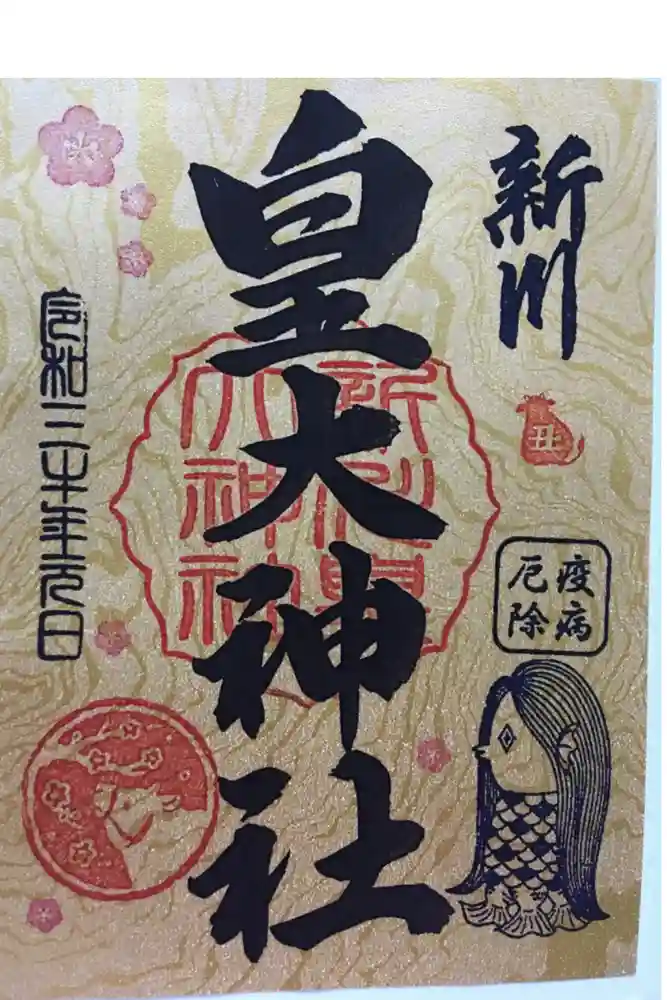 新川
皇大神社
新川皇
大神社
丑
疫病
厄除
令和三年元日